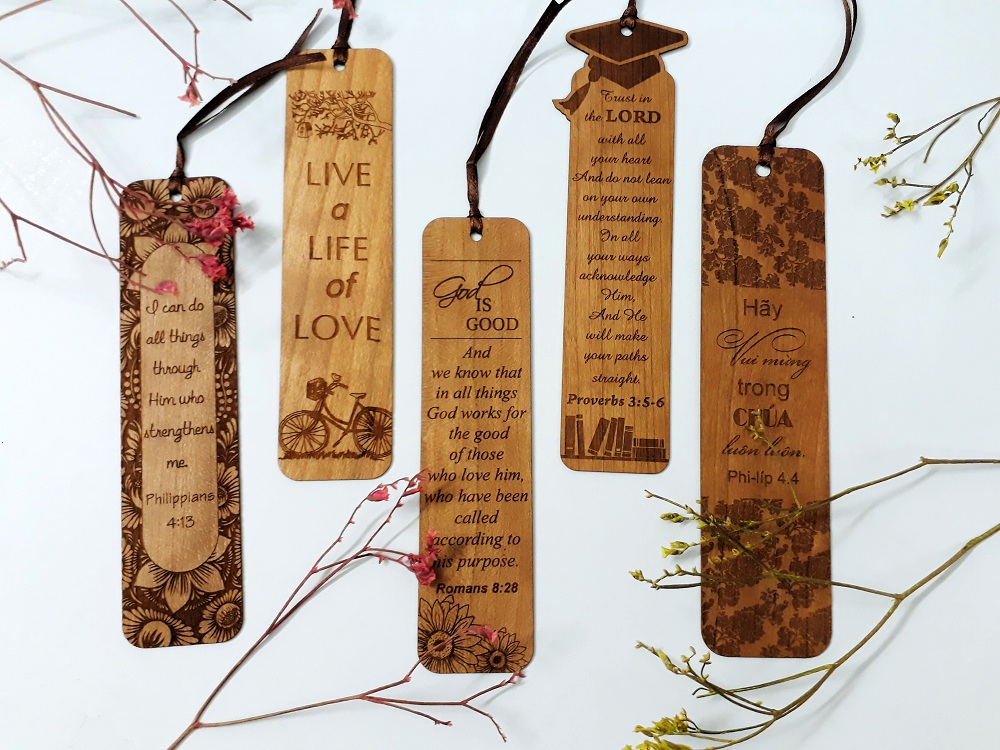 I can do
all things
through
Him who
strengthens
me.
Philippians
4:13
LIVE
a
LIFE
of
LOVE
God
IS
GOOD
And
we know that
in all things
God works for
the good
of those
who love him,
who have been
called
according to
his purpose.
Romans 8:28
Trust in
the LORD
with all
your heart
And do not lean
on your own
understanding.
In all
your ways
acknowledge
Him,
And He
will make
your paths
straight.
Proverbs 3:5-6
Hãy
Vui mừng
trong
CHÚA
luôn luôn.
Phi-líp 4.4